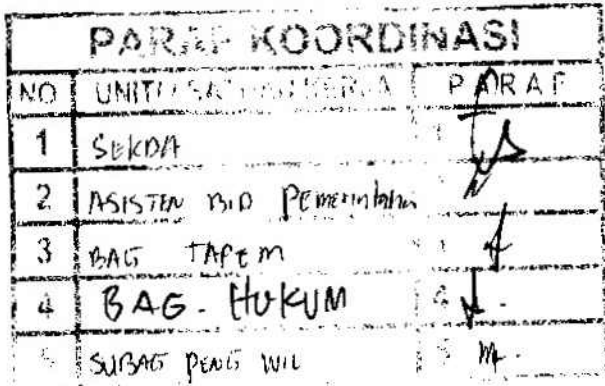 PARAF KOORDINASI
NO UNIT / SATUAN KERJA PARAF
1 SEKDA 1
2 ASISTEN BID Pemerintahan
3 BAG TAPEM 3
4 BAG. HUKUM 4
5 SUBAG PENG WIL 5